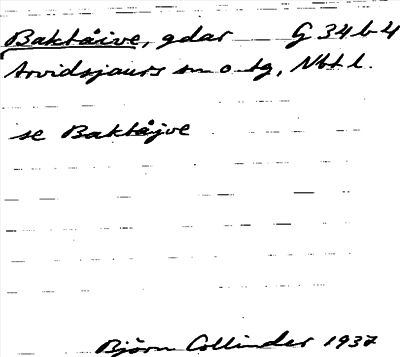 Baktåive, gdar G 34 b 4
Arvidsjaurs sn o tg, Nbtl.
se Baktåjve
Björn Collinder 1937